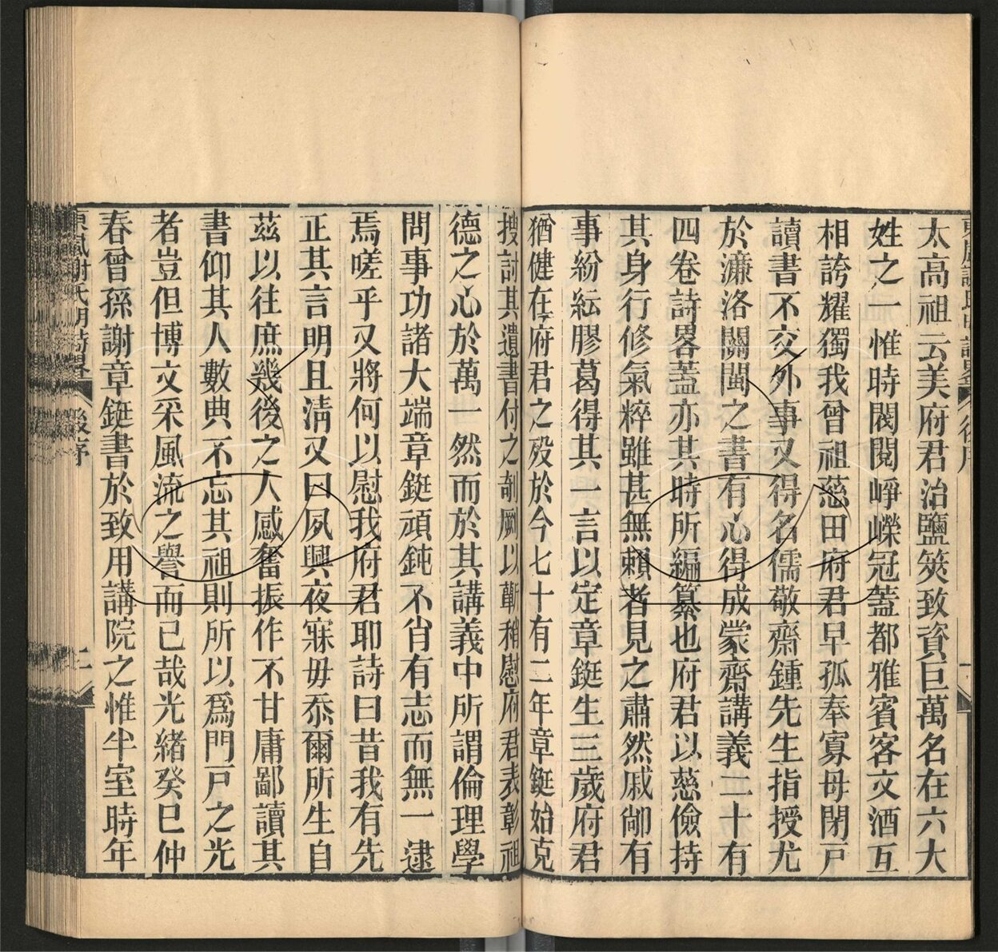 太高祖云美府君治鹽筴致資巨萬名在六大
姓之一惟時閥閱崢嶸冠蓋都雅賓客文酒互
相誇耀獨我曾祖慈田府君早孤奉寡母閉戸
讀書不交外事又得名儒敬齋鍾先生指授尤
於濂洛關閩之書有心得成蒙齋講義二十有
四卷詩畧蓋亦其時所編纂也府君以慈儉持
其身行修氣粹雖甚無賴者見之肅然戚鄰有
事紛紜膠葛得其一言以定章鋌生三歲府君
猶健在府君之殁於今七十有二年章鋌始克
搜討其遺書付之剞劂以蘄稍慰府君表彰祖
德之心於萬一然而於其講義中所謂倫理學
問事功諸大端章鋌頑鈍不肖有志而無一逮
焉嗟乎又將何以慰我府君耶詩曰昔我有先
正其言明且清又曰夙興夜寐毋忝爾所生自
茲以往庶幾後之人感奮振作不甘庸鄙讀其
書仰其人數典不忘其祖則所以爲門戸之光
者豈但博文采風流之譽而已哉光緒癸巳仲
春曾孫謝章鋌書於致用講院之惟半室時年
東嵐謝氏明詩畧 後序 二